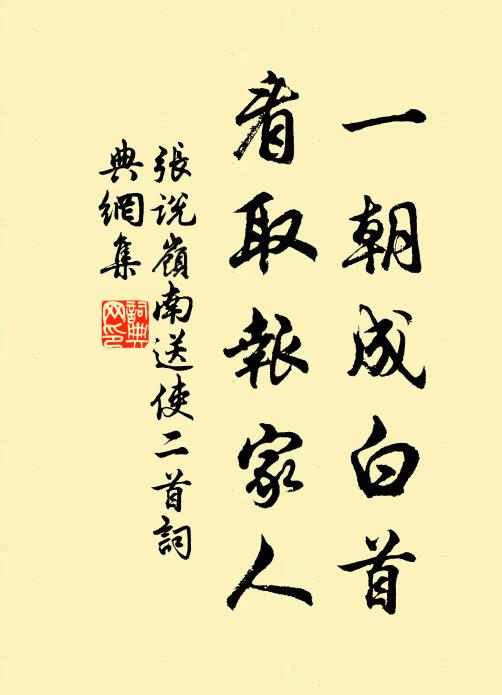 一朝成白首
看取報家人
張說嶺南送使二首詞
典網集
詞典
网印